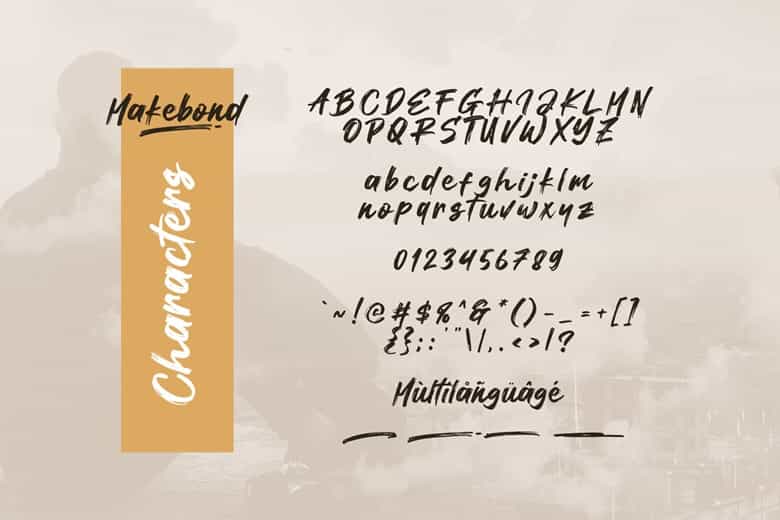 Makebond
Characters
ABCDEFGHIJKLMN
OPQRSTUVWXYZ
abcdefghijklm
nopqrstuvwxyz
0123456789
`~!@#$%^&*()-_=+[]
{};:'"\|,.<>/?
Mùltilåñgüâgé